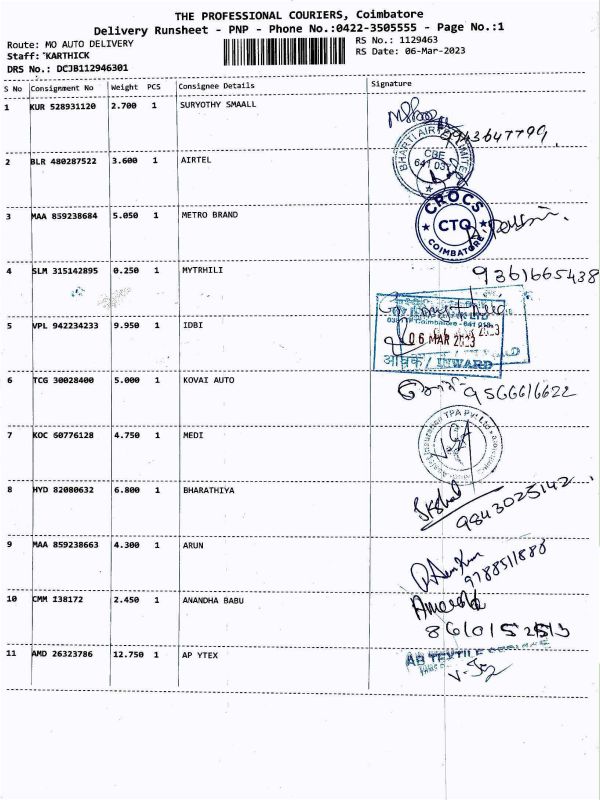 THE PROFESSIONAL COURIERS, Coimbatore
Delivery Runsheet - PNP - Phone No.:0422-3505555 - Page No.:1
Route: MO AUTO DELIVERY
RS No.: 1129463
Staff: *KARTHICK
RS Date: 06-Mar-2023
DRS No.: DCJB112946301
S No Consignment No Weight PCS Consignee Details Signature
1 KUR 528931120 2.700 1 SURYOTHY SMAALL
9943647799
BHARTI AIRTEL LIMITED
CBE
641 037
2 BLR 480287522 3.600 1 AIRTEL
CROCS
CTQ
COIMBATORE
3 MAA 859238684 5.050 1 METRO BRAND
4 SLM 315142895 0.250 1 MYTRHILI
9361665438
5 VPL 942234233 9.950 1 IDBI
06 MAR 2023
आवक / INWARD
6 TCG 30028400 5.000 1 KOVAI AUTO
9566616622
7 KOC 60776128 4.750 1 MEDI
Insurance TPA Pvt Ltd
8 HYD 82080632 6.800 1 BHARATHIYA
9843025142
9 MAA 859238663 4.300 1 ARUN
9788511888
10 CMM 138172 2.450 1 ANANDHA BABU
11 AMD 26323786 12.750 1 AP YTEX